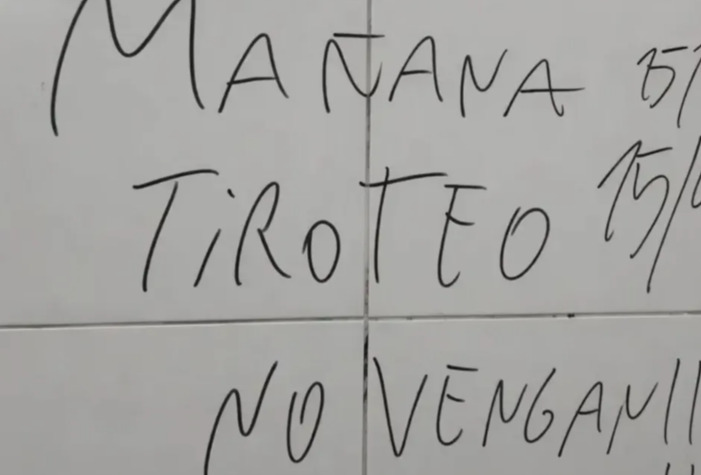 MAÑANA 15/
TIROTEO 15/
NO VENGAN!!